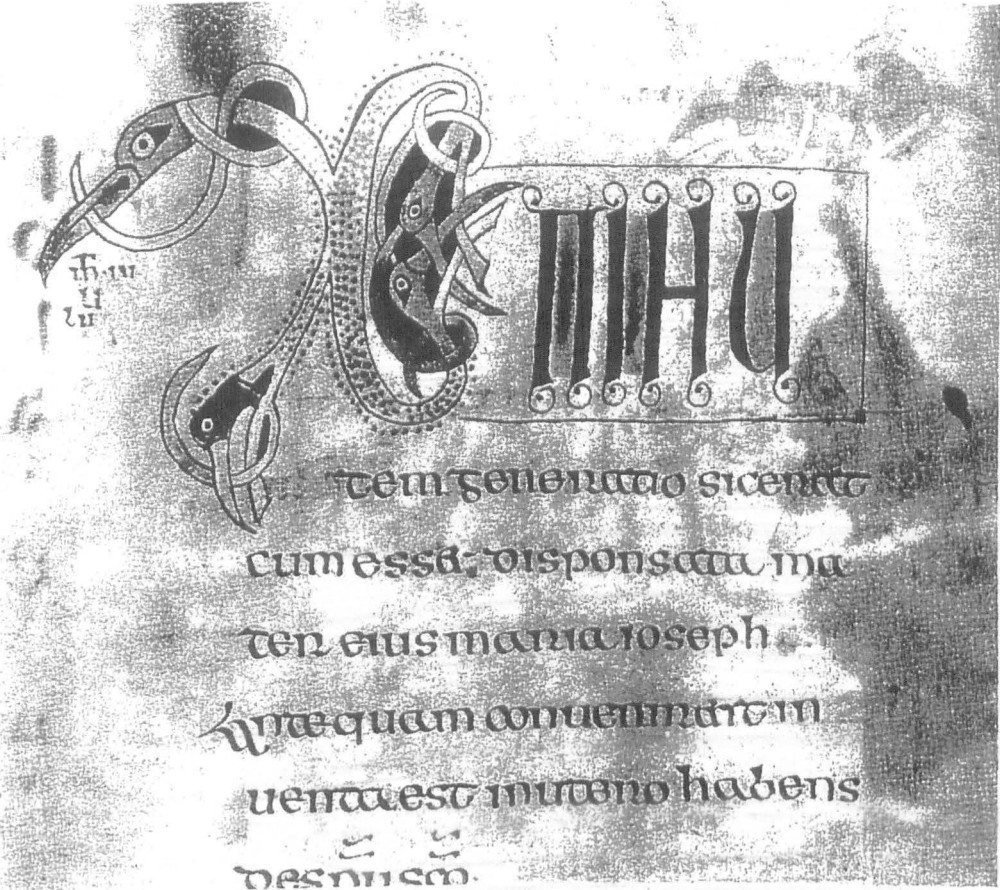 XPI AU
tem generatio sic erat
cum esset; disponsata ma
ter eius maria ioseph
Antequam conuenirent in
uenta est in utero habens
de spu sco.